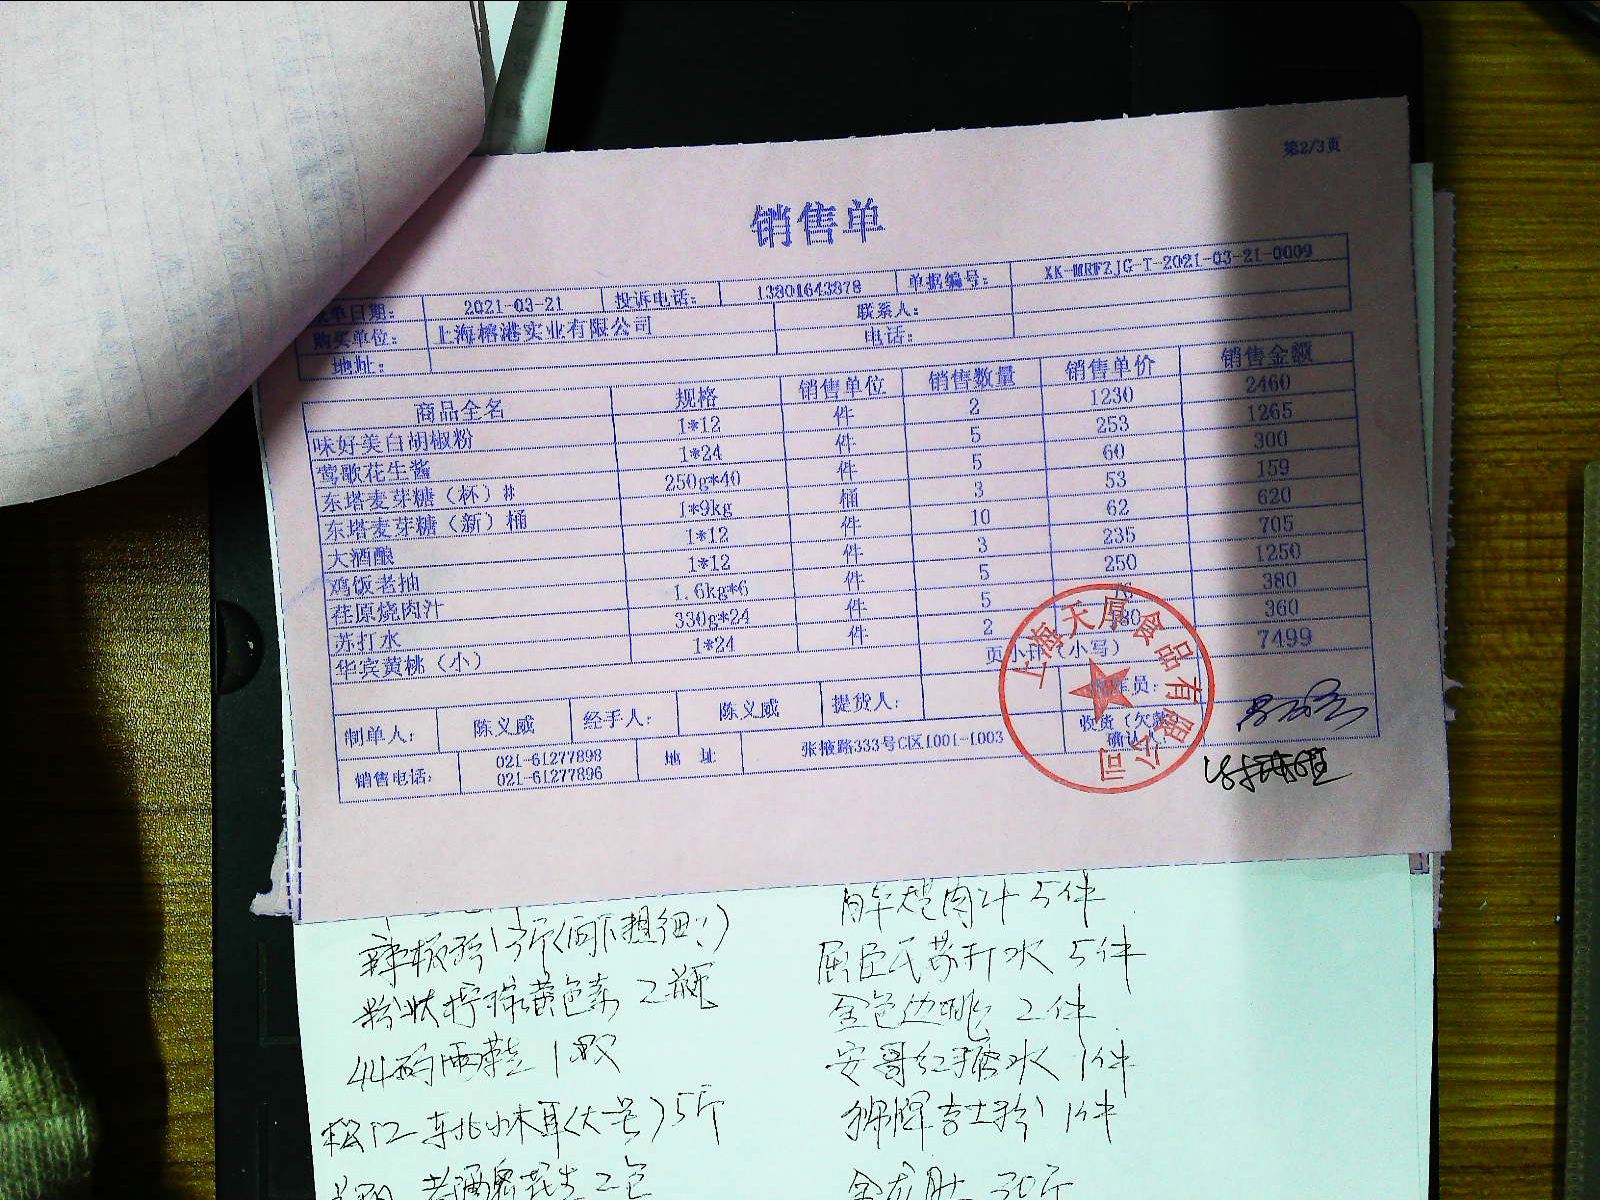 第2/3页
销售单
单日期: 2021-03-21 投诉电话: 13801643878 单据编号: XK-MRFZJG-T-2021-03-21-0009
购买单位: 上海榕港实业有限公司 联系人:
地址: 电话:
商品全名 规格 销售单位 销售数量 销售单价 销售金额
味好美白胡椒粉 1*12 件 2 1230 2460
莺歌花生酱 1*24 件 5 253 1265
东塔麦芽糖（杯）# 250g*40 件 5 60 300
东塔麦芽糖（新）桶 1*9kg 桶 3 53 159
大酒酿 1*12 件 10 62 620
鸡饭老抽 1*12 件 3 235 705
荏原烧肉汁 1.6kg*6 件 5 250 1250
苏打水 330g*24 件 5 76 380
华宾黄桃（小） 1*24 件 2 180 360
页小计（小写） 7499
制单人: 陈义威 经手人: 陈义威 提货人: 员:
销售电话: 021-61277898 021-61277896 地 址 张掖路333号C区1001-1003 收货（欠款 确认
上海天厚食品有限公司
烧肉汁 5件
屈臣氏苏打水 5件
粉状柠檬黄色素 2瓶
金色边桃 2件
44码雨鞋 1双
安哥红糖水 1件
松江 东北小木耳(大芒) 5斤
狮牌吉士粉 1件
老酒鬼花生 2包
30斤